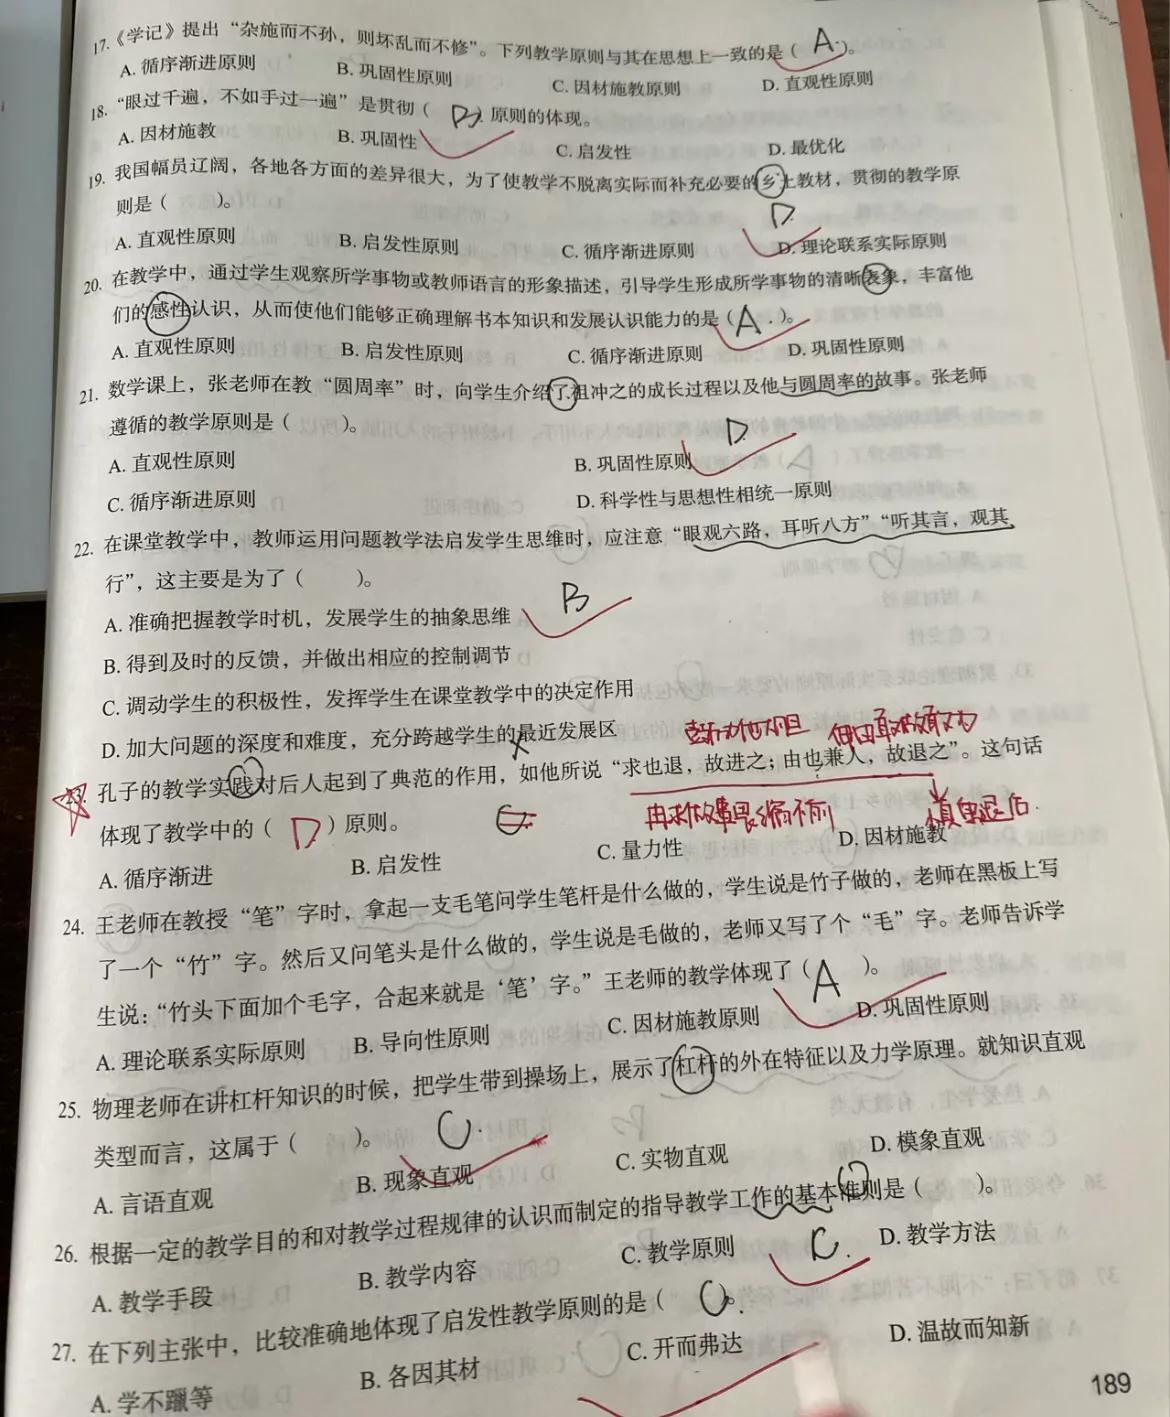 17.《学记》提出“杂施而不孙，则坏乱而不修”。下列教学原则与其在思想上一致的是（ A. ）。
A. 循序渐进原则 B. 巩固性原则 C. 因材施教原则 D. 直观性原则
18. “眼过千遍，不如手过一遍”是贯彻（ B ）原则的体现。
A. 因材施教 B. 巩固性 C. 启发性 D. 最优化
19. 我国幅员辽阔，各地各方面的差异很大，为了使教学不脱离实际而补充必要的乡土教材，贯彻的教学原
则是（ ）。
D
A. 直观性原则 B. 启发性原则 C. 循序渐进原则 D. 理论联系实际原则
20. 在教学中，通过学生观察所学事物或教师语言的形象描述，引导学生形成所学事物的清晰表象，丰富他
们的感性认识，从而使他们能够正确理解书本知识和发展认识能力的是（ A . ）。
A. 直观性原则 B. 启发性原则 C. 循序渐进原则 D. 巩固性原则
21. 数学课上，张老师在教“圆周率”时，向学生介绍了祖冲之的成长过程以及他与圆周率的故事。张老师
遵循的教学原则是（ ）。
D
A. 直观性原则 B. 巩固性原则
C. 循序渐进原则 D. 科学性与思想性相统一原则
22. 在课堂教学中，教师运用问题教学法启发学生思维时，应注意“眼观六路，耳听八方”“听其言，观其
行”，这主要是为了（ ）。
B
A. 准确把握教学时机，发展学生的抽象思维
B. 得到及时的反馈，并做出相应的控制调节
C. 调动学生的积极性，发挥学生在课堂教学中的决定作用
D. 加大问题的深度和难度，充分跨越学生的最近发展区
23. 孔子的教学实践对后人起到了典范的作用，如他所说“求也退，故进之；由也兼人，故退之”。这句话
体现了教学中的（ D ）原则。
退后
A. 循序渐进 B. 启发性 C. 量力性 D. 因材施教
24. 王老师在教授“笔”字时，拿起一支毛笔问学生笔杆是什么做的，学生说是竹子做的，老师在黑板上写
了一个“竹”字。然后又问笔头是什么做的，学生说是毛做的，老师又写了个“毛”字。老师告诉学
生说：“竹头下面加个毛字，合起来就是‘笔’字。”王老师的教学体现了（ A ）。
A. 理论联系实际原则 B. 导向性原则 C. 因材施教原则 D. 巩固性原则
25. 物理老师在讲杠杆知识的时候，把学生带到操场上，展示了杠杆的外在特征以及力学原理。就知识直观
类型而言，这属于（ ）。
C.
A. 言语直观 B. 现象直观 C. 实物直观 D. 模象直观
26. 根据一定的教学目的和对教学过程规律的认识而制定的指导教学工作的基本准则是（ ）。
C.
A. 教学手段 B. 教学内容 C. 教学原则 D. 教学方法
27. 在下列主张中，比较准确地体现了启发性教学原则的是（ C ）。
A. 学不躐等 B. 各因其材 C. 开而弗达 D. 温故而知新
189